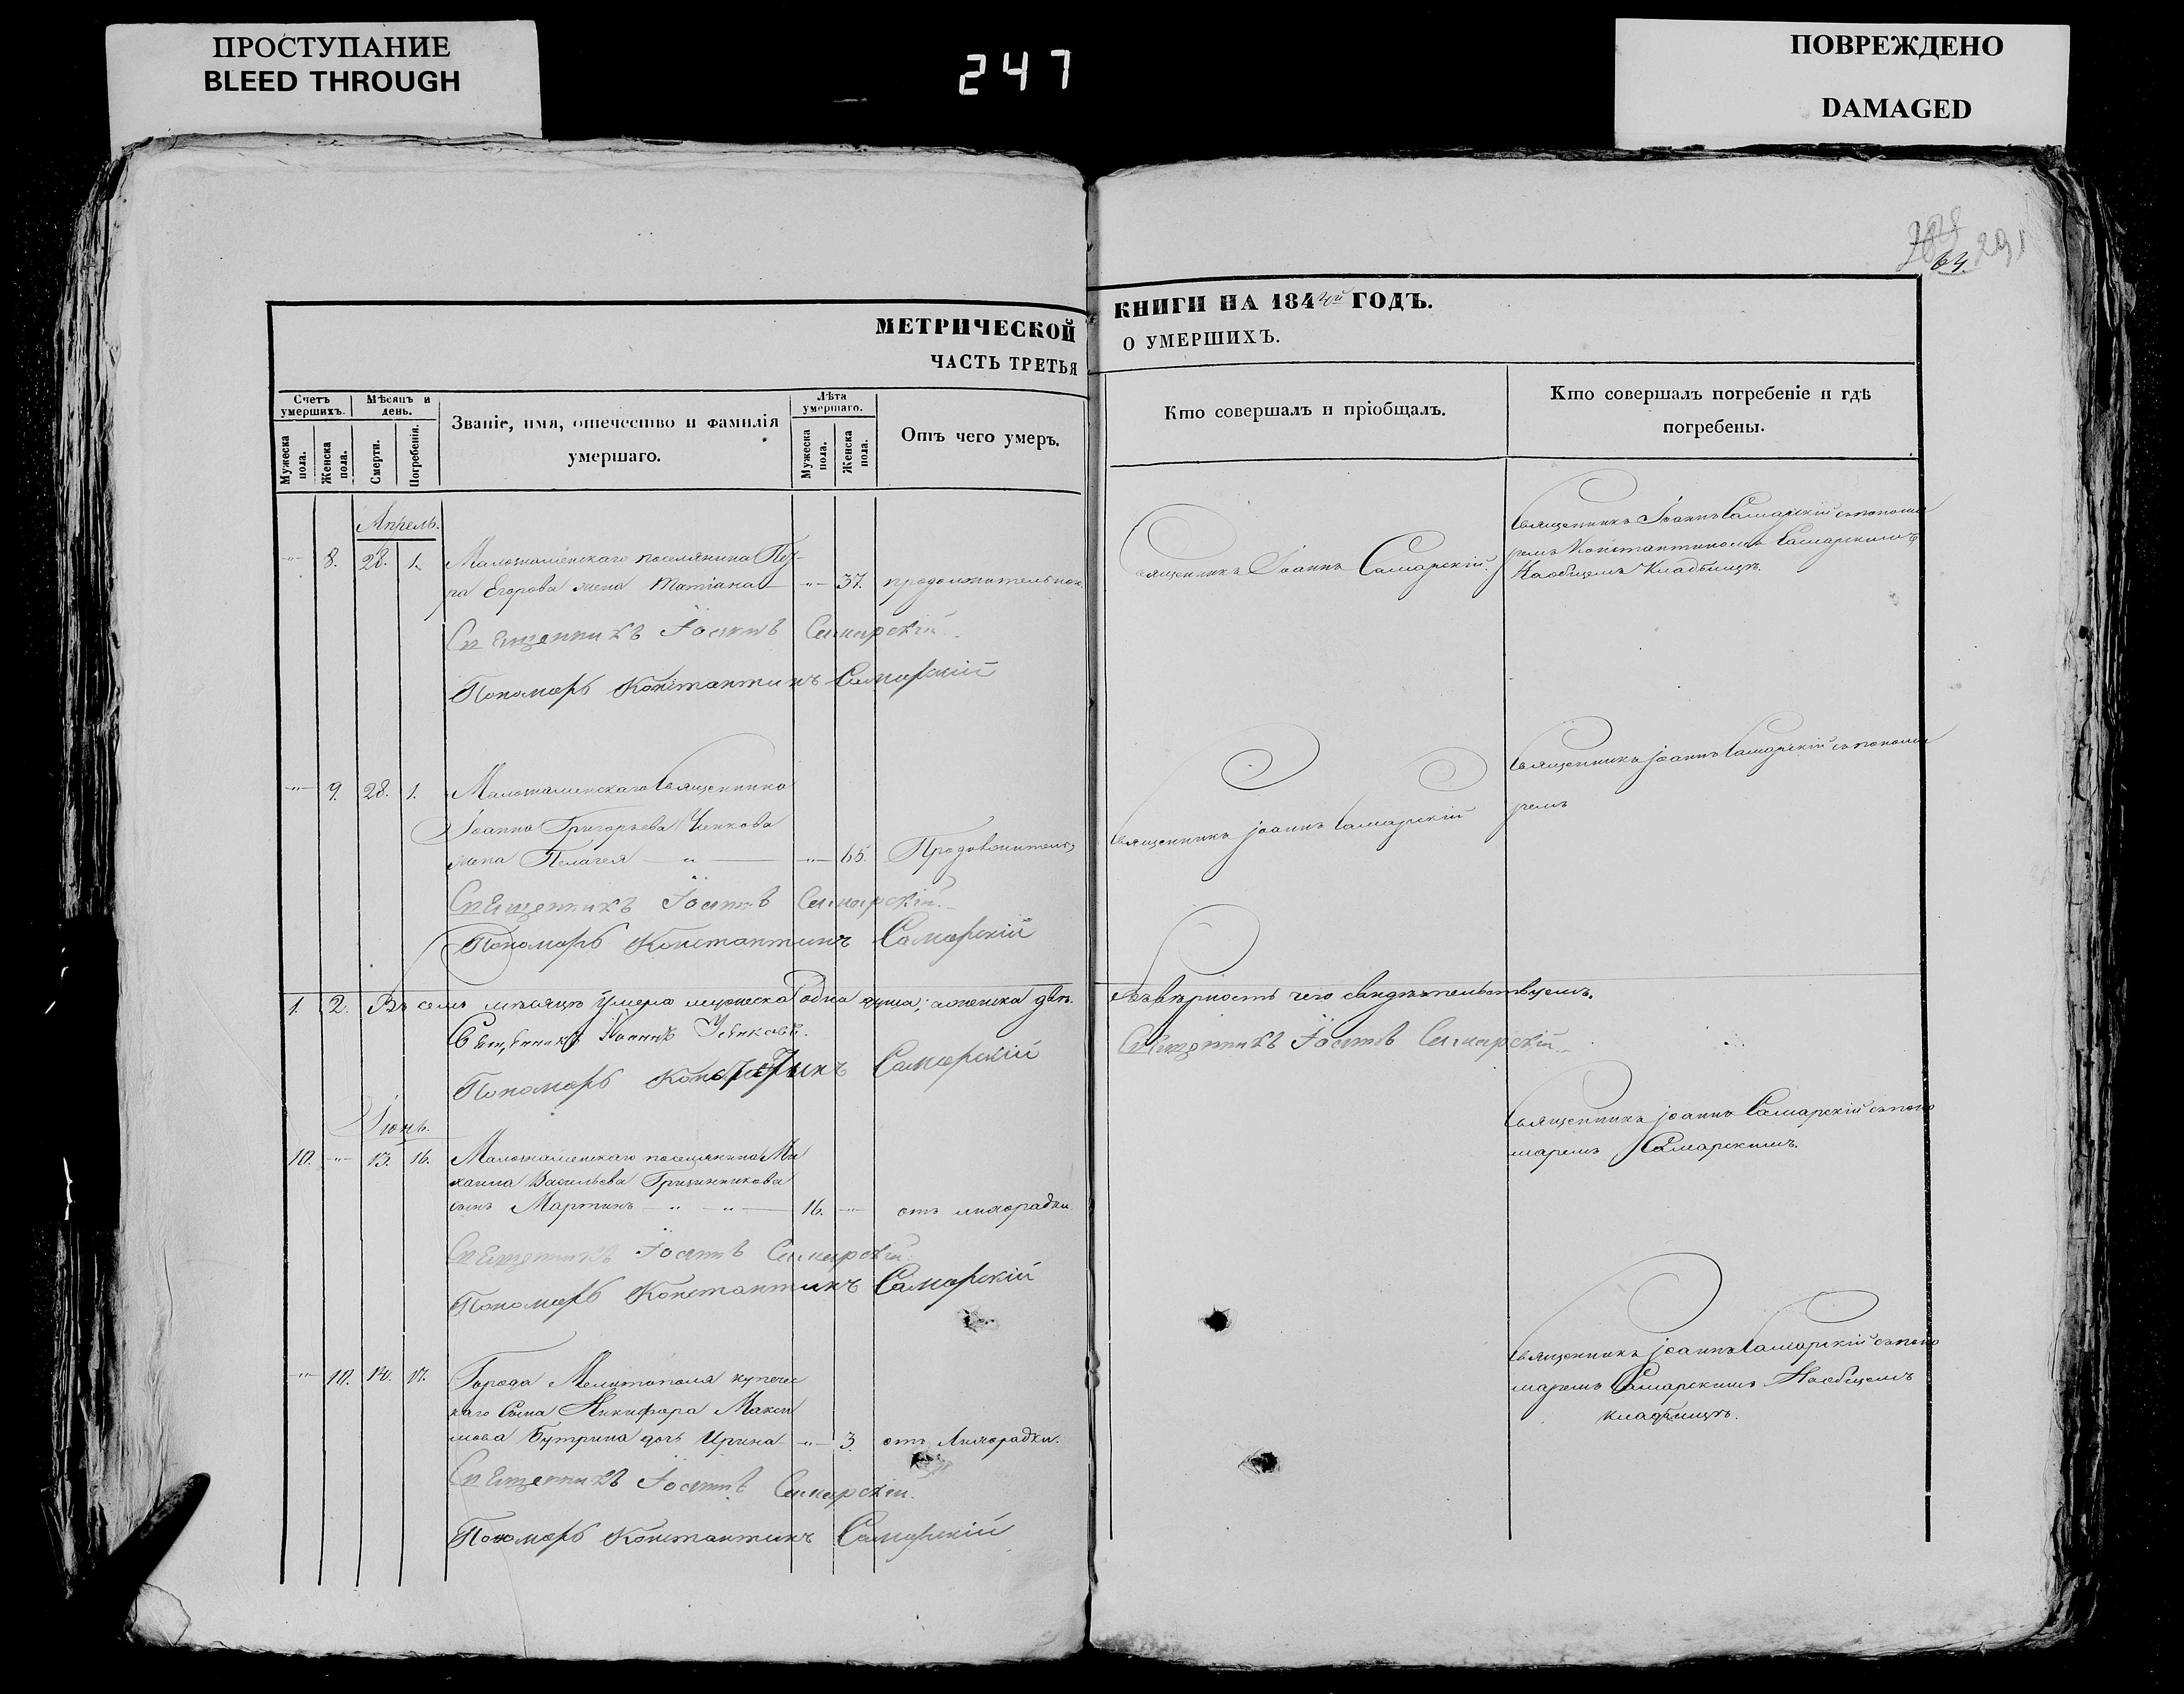 ПРОСТУПАНИЕ
BLEED THROUGH
247
ПОВРЕЖДЕНО
DAMAGED
291
64.
МЕТРИЧЕСКОЙ
ЧАСТЬ ТРЕТЬЯ
КНИГИ НА 1844й ГОДЪ.
О УМЕРШИХЪ.
Счетъ умершихъ.
Мужеска пола.
Женска пола.
Мѣсяцъ и день.
Смерти.
Погребенія.
Званіе, имя, отечество и фамилія
умершаго.
Лѣта умершаго.
Мужеска пола.
Женска пола.
Отъ чего умеръ.
Кто совершалъ и пріобщалъ.
Кто совершалъ погребеніе и гдѣ
погребены.
Апрель.
8. 28. 1. Малознаменскаго поселянина Пет-
ра Егорова жена Татіана 37.
Священникъ Іоаннъ Самарскій.
Священникъ Іоаннъ Самарскій съ понома
ремъ Константиномъ Самарскимъ
На общемъ Кладбищѣ.
Священникъ Іоаннъ Самарскій
Пономарь Константинъ Самарскій
9. 28. 1. Малознаменскаго Священника
Іоанна Григорьева
жена Пелагея 65.
Священникъ Іоаннъ Самарскій
Священникъ Іоаннъ Самарскій съ понома
ремъ
Священникъ Іоаннъ Самарскій.
Пономарь Константинъ Самарскій
1. 2. Въ семъ мѣсяцѣ умерло мужеска одна душа; а женска двѣ.
Въ вѣрности чего свидѣтельствуемъ.
Священникъ Іоаннъ
Священникъ Іоаннъ Самарскій
Пономарь Константинъ Самарскій
Іюнь.
10. 13. 16. Малознаменскаго поселянина Ми
хаила Васильева
сынъ Мартинъ 16. отъ лихорадки
Священникъ Іоаннъ Самарскій съ поно
маремъ Самарскимъ.
Священникъ Іоаннъ Самарскій.
Пономарь Константинъ Самарскій
10. 14. 17. Города Мелитополя купечес
каго Сына Никифора Макси
мова Бутрина дочь Ирина 3. отъ Лихорадки.
Священникъ Іоаннъ Самарскій съ поно
маремъ Самарскимъ На общемъ
кладбищѣ.
Священникъ Іоаннъ Самарскій.
Пономарь Константинъ Самарскій